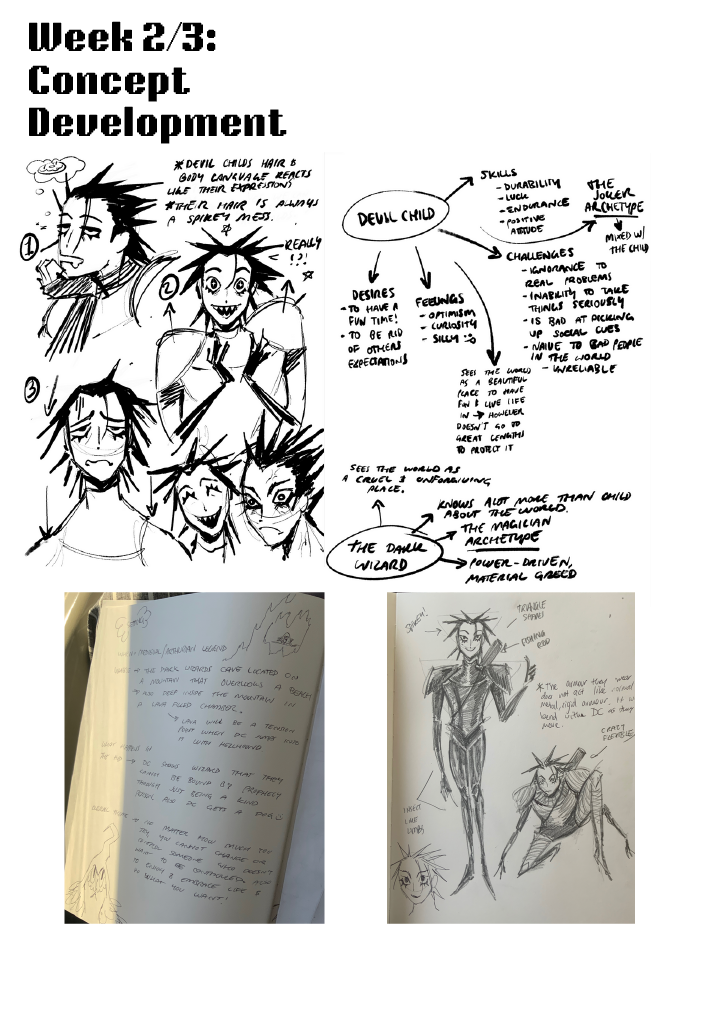 Week 2/3:
Concept
Development
* DEVIL CHILDS HAIR &
BODY LANGUAGE REACTS
LIKE THEIR EXPRESSIONS
* THEIR HAIR IS ALWAYS
A SPIKEY MESS.
REALLY
!?!
1
2
3
DEVIL CHILD
SKILLS
- DURABILITY
- LUCK
- ENDURANCE
- POSITIVE
ATTITUDE
THE
JOKER
ARCHETYPE
MIXED W/
THE CHILD
CHALLENGES
- IGNORANCE TO
REAL PROBLEMS
- INABILITY TO TAKE
THINGS SERIOUSLY
- IS BAD AT PICKING
UP SOCIAL CUES
- NAIVE TO BAD PEOPLE
IN THE WORLD
- UNRELIABLE
DESIRES
- TO HAVE A
FUN TIME!
- TO BE RID
OF OTHERS
EXPECTATIONS
FEELINGS
- OPTIMISM
- CURIOSITY
- SILLY
SEES THE WORLD
AS A BEAUTIFUL
PLACE TO HAVE
FUN & LIVE LIFE
IN → HOWEVER
DOESN'T GO TO
GREAT LENGTHS
TO PROTECT IT
SEES THE WORLD AS
A CRUEL & UNFORGIVING
PLACE.
THE DARK
WIZARD
KNOWS ALOT MORE THAN CHILD
ABOUT THE WORLD.
THE MAGICIAN
ARCHETYPE
POWER-DRIVEN,
MATERIAL GREED
MEDIEVAL/ARTHURIAN LEGEND
→ THE DARK WIZARDS CAVE LOCATED ON
A MOUNTAIN THAT OVERLOOKS A BEACH
→ DEEP INSIDE THE MOUNTAIN IN
A LAVA FILLED CHAMBER.
↳ LAVA WILL BE A TENSION
POINT WHEN DC
IT WITH
→ DC SHOWS WIZARD THAT THEY
NOT BEING A GOOD
PERSON FOR DC GETS A
→ NO MATTER HOW MUCH YOU
TRY YOU CANNOT CHANGE OR
CONTROL SOMEONE WHO DOESN'T
WANT TO BE CONTROLLED. ALSO
TO ENJOY & EMBRACE LIFE &
YOU WANT!
SPIKEY!
TRIANGLE
SHAPES
FISHING
ROD
* The armour they wear
does not act like normal
metal, rigid armour. It will
bend & the DC as they
move.
CRAZY
FLEXIBLE
INSECT
LIKE
LIMBS